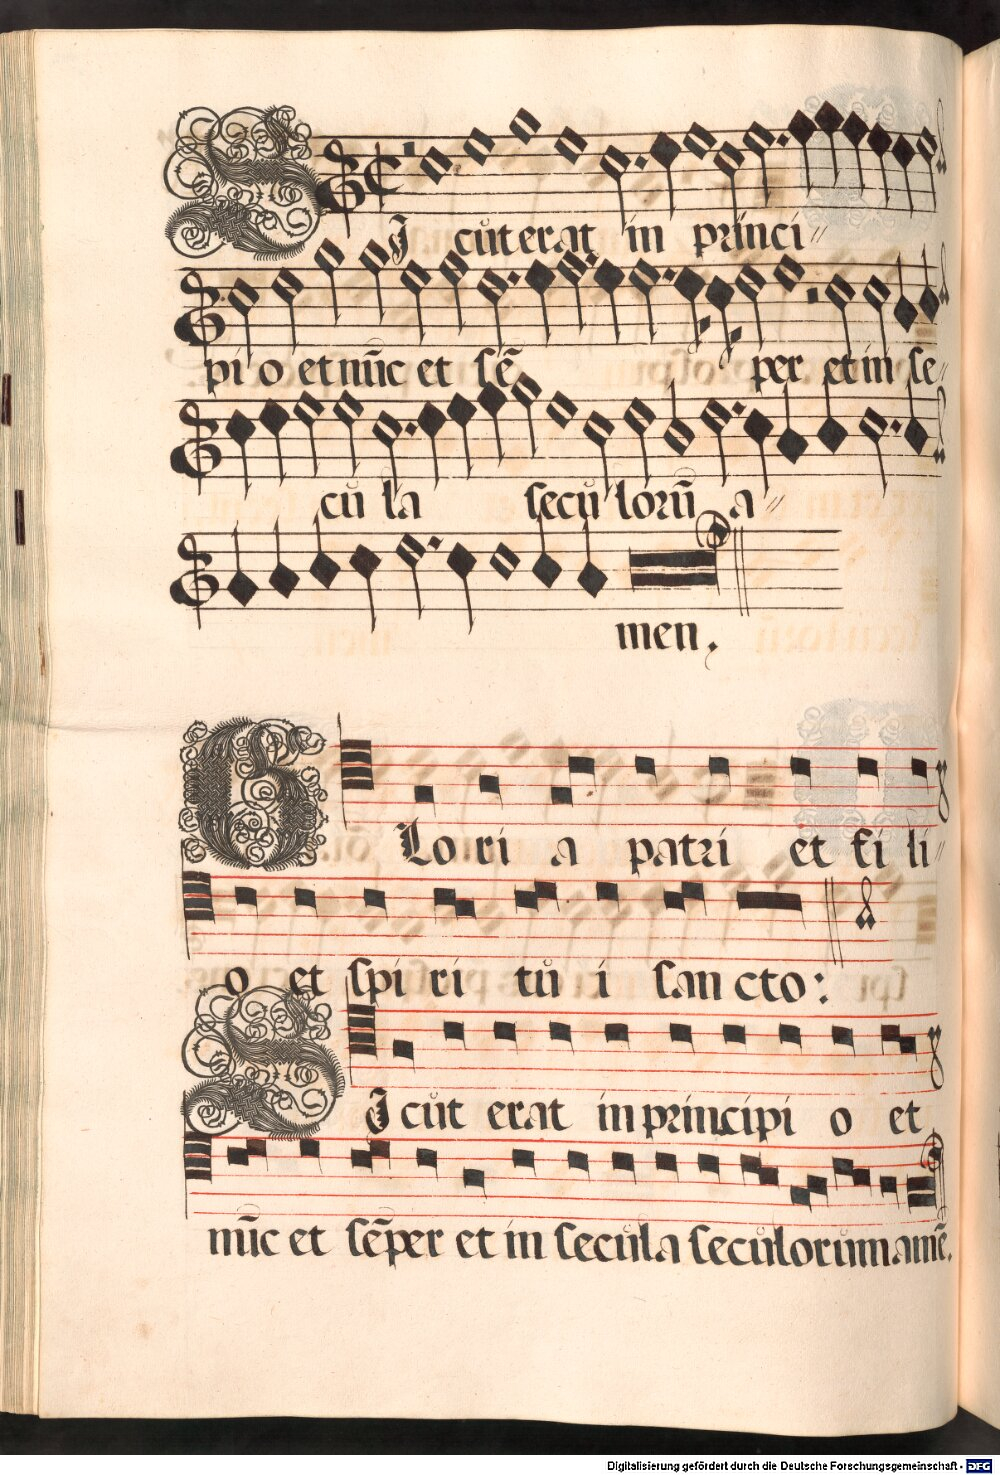 SIcůt erat in princi〃
pi o et nūc et sē per et in se〃
ců la secůlorū a〃
men.
GLo ri a patri et fi li〃
o et spi ri tů i san cto:
SIcůt erat in principi o et
nūc et sēper et in secůla secůlorůmamē.
Digitalisierung gefördert durch die Deutsche Forschungsgemeinschaft - DFG